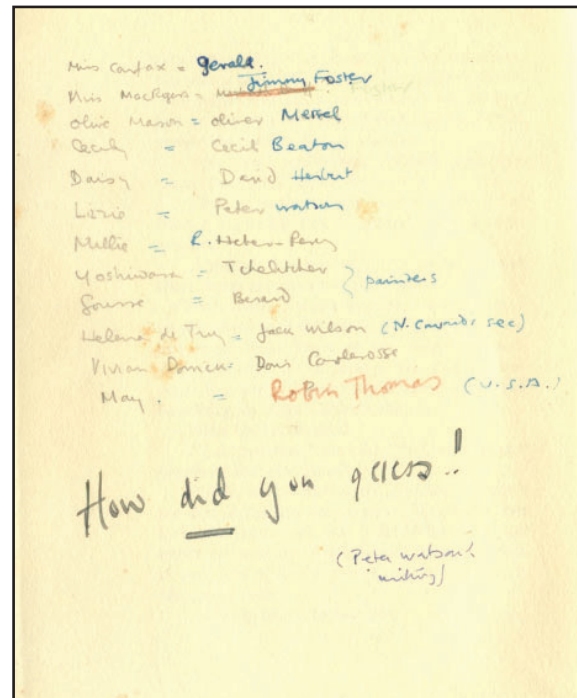 Miss Carfax = Gerald.
Miss MacRogers = Jimmy Foster
Olive Mason = Oliver Messel
Cecily = Cecil Beaton
Daisy = David Herbert
Lizzie = Peter Watson
Millie = R. Heber-Percy
Yoshiwara = Tchelitchev } painters
Gousse = Berard
Helene de Troy = Jack Wilson (N. Coward's sec)
Vivian Dorrick = Doris Castlerosse
May. = Robin Thomas (U.S.A.)
How did you guess!
(Peter Watson's
writing)